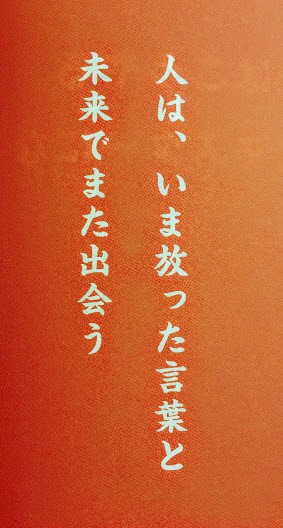 人は、いま放った言葉と
未来でまた出会う